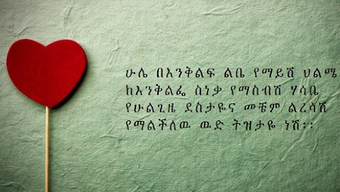 ሁሌ በእንቅልፍ ልቤ የማይሽ ህልሜ
ከእንቅልፌ ስነቃ የማስብሽ ሃሳቤ
የሁልጊዜ ደስታዬና መቼም ልረሳሽ
የማልችለዉ ዉድ ትዝታዬ ነሽ።።